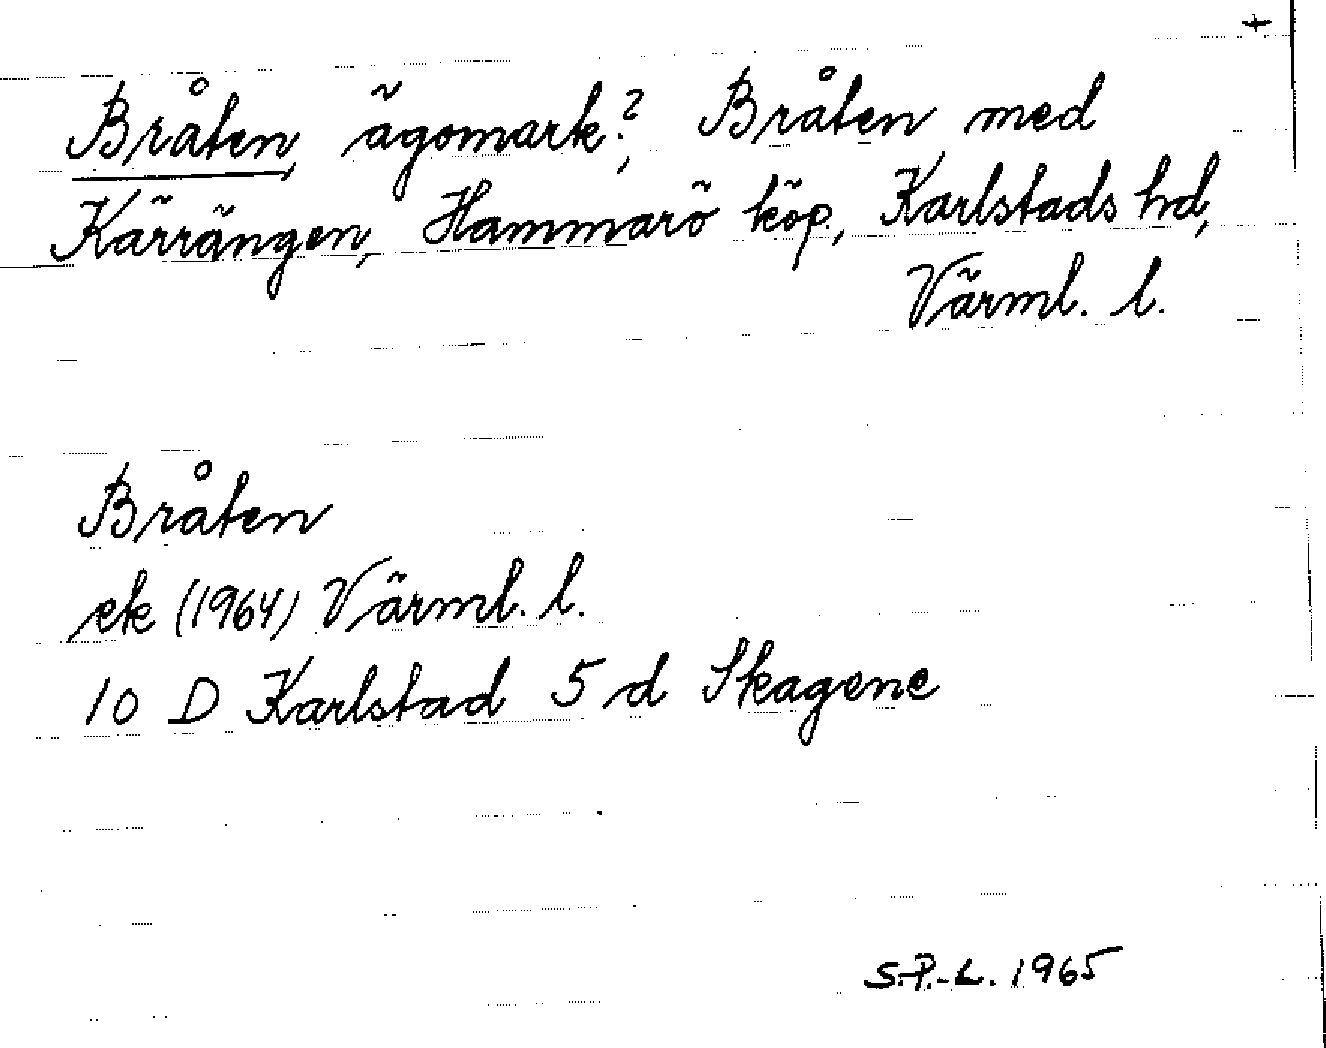 +
Bråten, ägomark?, Bråten med
Kärrängen, Hammarö köp., Karlstads hd,
Värml. l.
Bråten
ek (1964) Värml. l.
10 D Karlstad 5 d Skagene
S.P.-L. 1965